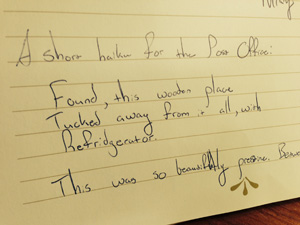 A short haiku for the Post Office:
Found, this wooden place
Tucked away from it all, with
Refridgerator.
This was so beautifully